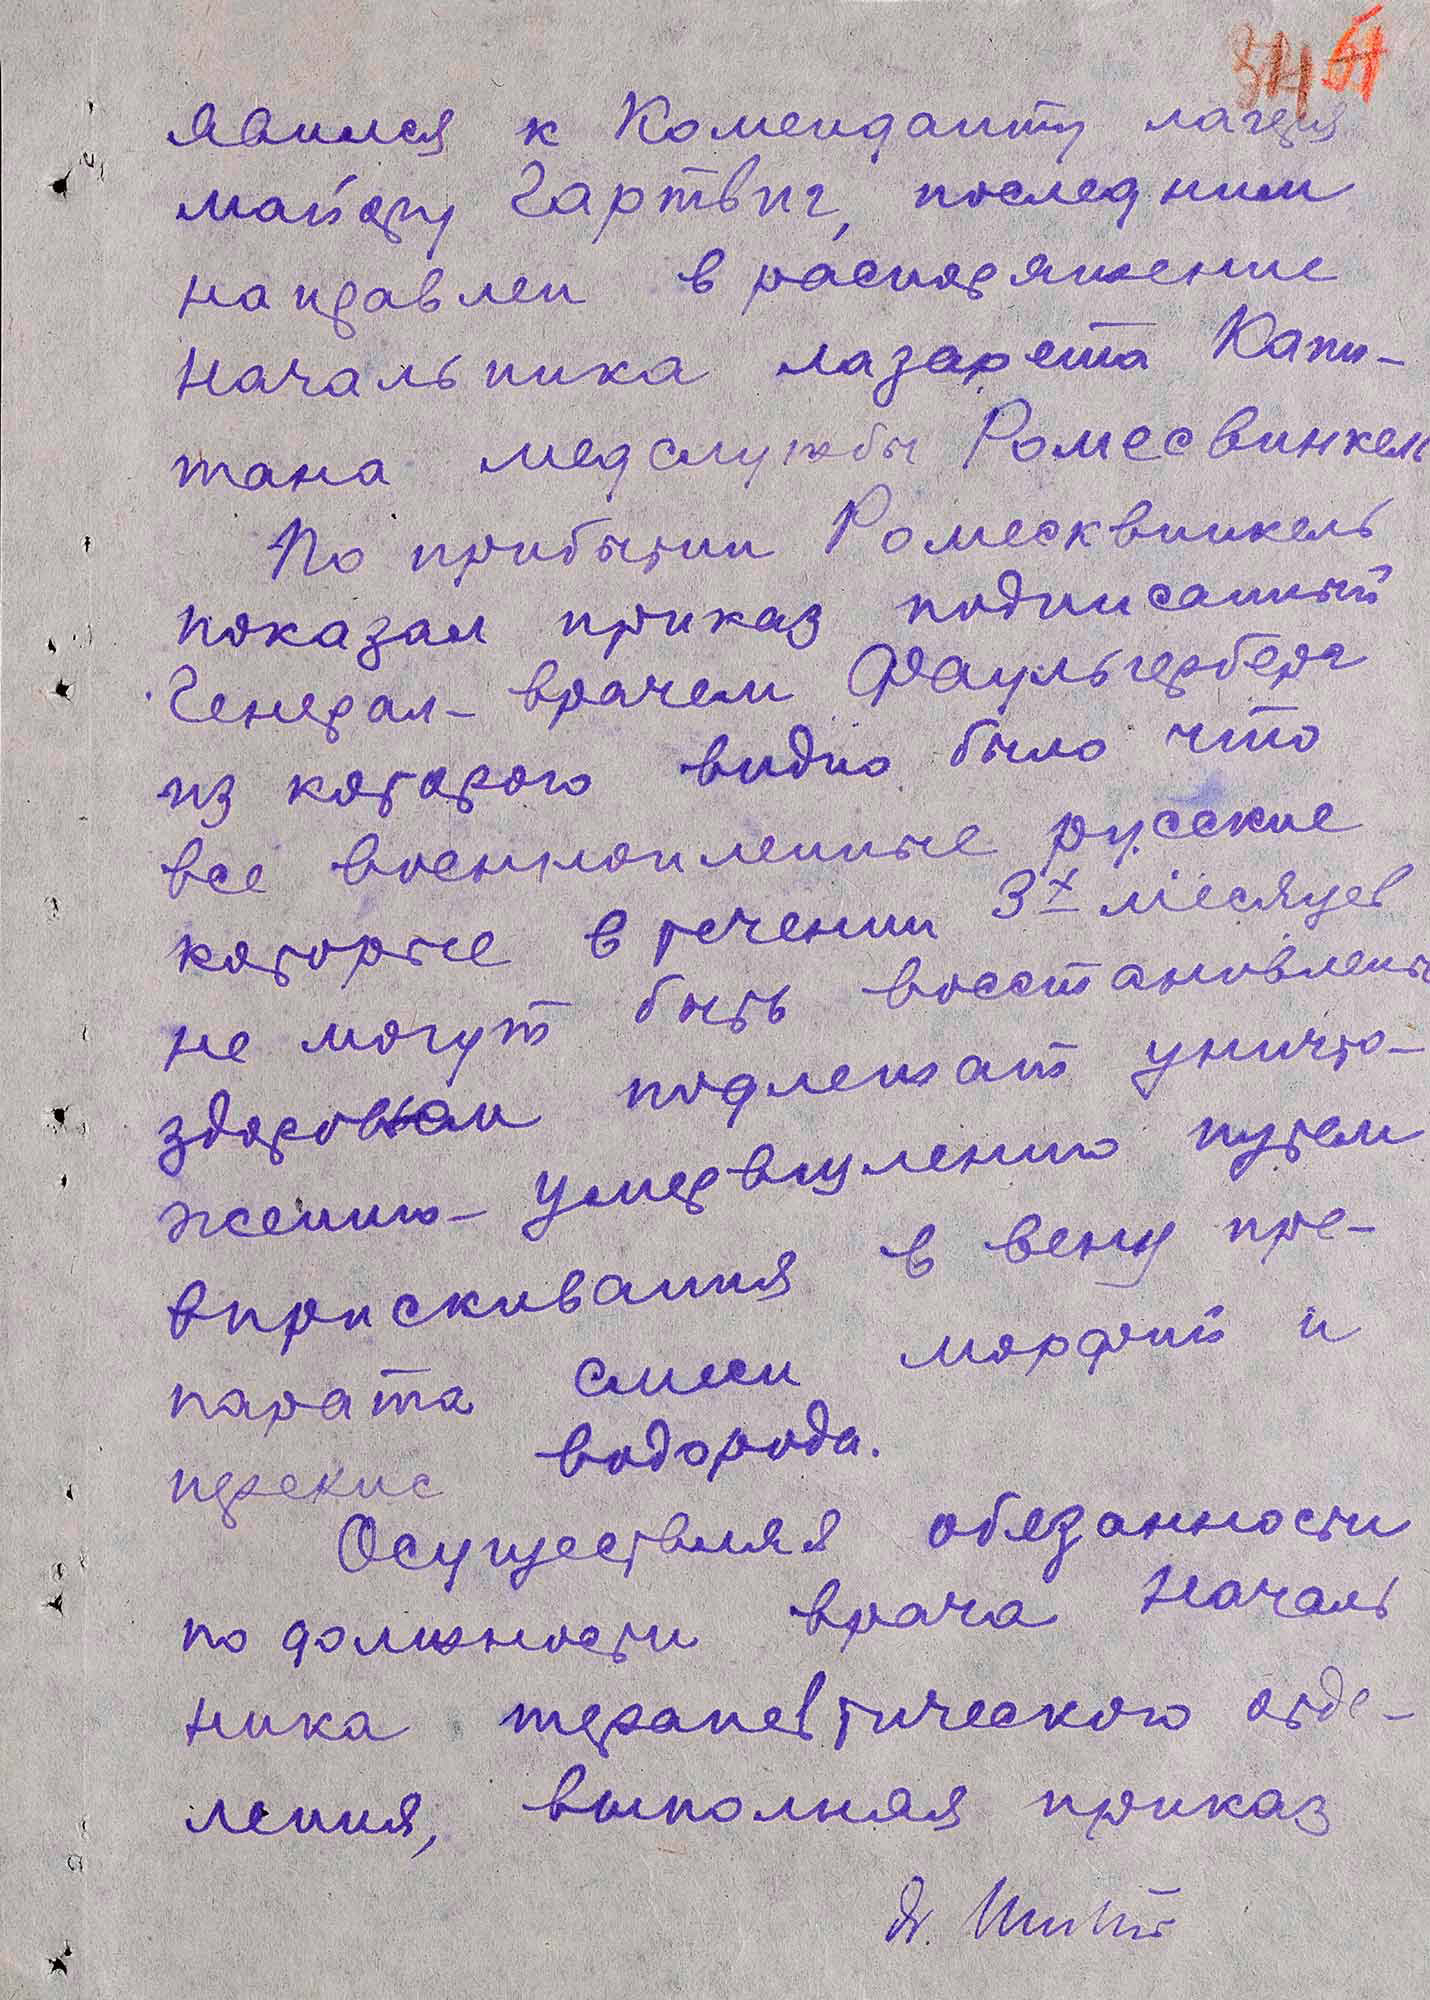 явился к Коменданту лагеря
майору Гартвиг, последним
направлен в распоряжение
начальника лазарета Капи-
тана медслужбы Ромесвинкель
По прибытии Ромесквинкель
показал приказ подписанный
Генерал-врачем Фаульгерберг
из которого видно было что
все военнопленные русские
которые в течении 3х месяцев
не могут быть восстановлены
здоровьем подлежат уничто-
жению - умерщвлению путем
впрыскивания в вену пре-
парата смеси морфий и
перекис водорода.
Осуществляя обязанности
по должности врача Началь
ника терапевтического отде-
ления, выполняя приказ